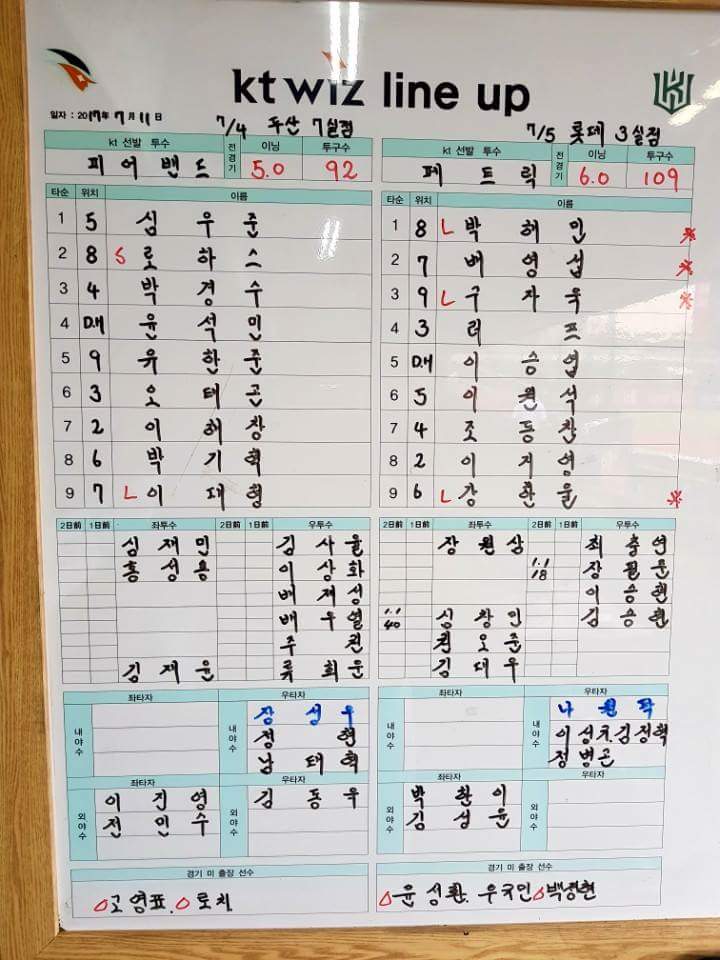 kt wiz line up
일자 : 2017年 7月 11日
7/4 두산 7실점
7/5 롯데 3실점
kt 선발 투수 전경기 이닝 투구수
피어밴드 5.0 92
kt 선발 투수 전경기 이닝 투구수
페트릭 6.0 109
타순 위치 이름
1 5 심우준
2 8 S 로하스
3 4 박경수
4 D.H 윤석민
5 9 유한준
6 3 오태곤
7 2 이해창
8 6 박기혁
9 7 L 이대형
타순 위치 이름
1 8 L 박해민 ※
2 7 배영섭 ※
3 9 L 구자욱 ※
4 3 러프
5 D.H 이승엽
6 5 이원석
7 4 조동찬
8 2 이지영
9 6 L 강한울 ※
2日前 1日前 좌투수 2日前 1日前 우투수
심재민 김사율
홍성용 이상화
배제성
배우열
주권
김재윤 류희운
2日前 1日前 좌투수 2日前 1日前 우투수
장원삼 최충연
1.1 18 장필준
이승현
1.1 40 심창민 김승현
권오준
김대우
좌타자 우타자
내야수 내야수 장성우
정현
남태혁
좌타자 우타자
외야수 이진영 외야수 김동욱
전민수
좌타자 우타자
내야수 내야수 나원탁
이성규.김정혁
정병곤
좌타자 우타자
외야수 박한이 외야수
김성윤
경기 미 출장 선수
△고영표. △로치
경기 미 출장 선수
△윤성환. 우규민 △백정현